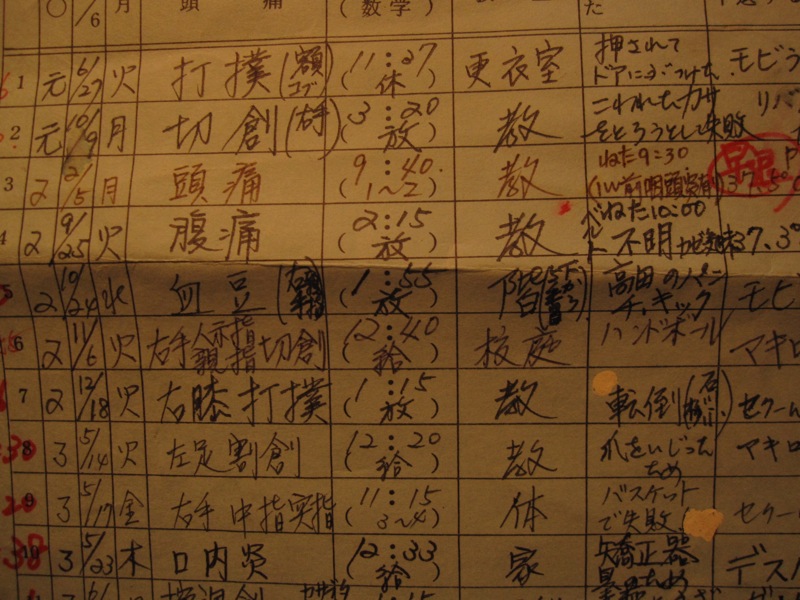 〇 6 月 頭 痛 (数学) た
1 元 6/27 火 打撲(額コブ) 11:27(休) 更衣室 押されてドアにぶつけた モビラ
2 元 10/9 月 切創(右手) 3:20(放) 教 こわれたカサをとろうとして失敗 リバ
3 2 2/5 月 頭痛 9:40(1〜2) 教 ねた9:30 37.5°
4 2 9/25 火 腹痛 2:15(放) 教 ねた10:00 不明 37.3°
5 2 10/24 水 血豆 1:55(放) 階 高田のパンチ,キック モビ
6 2 11/6 火 右手人示指親指切創 12:40(給) 校庭 ハンドボール マキロ
7 2 12/18 火 右膝打撲 1:15(放) 教 転倒 セクール
8 3 5/14 火 左足割創 12:20(給) 教 爪をいじったため マキロ
9 3 5/17 金 右手中指突指 11:15(3〜4) 体 バスケットで失敗! セクール
10 3 5/23 木 口内炎 12:33(給) 家 矯正器 デス